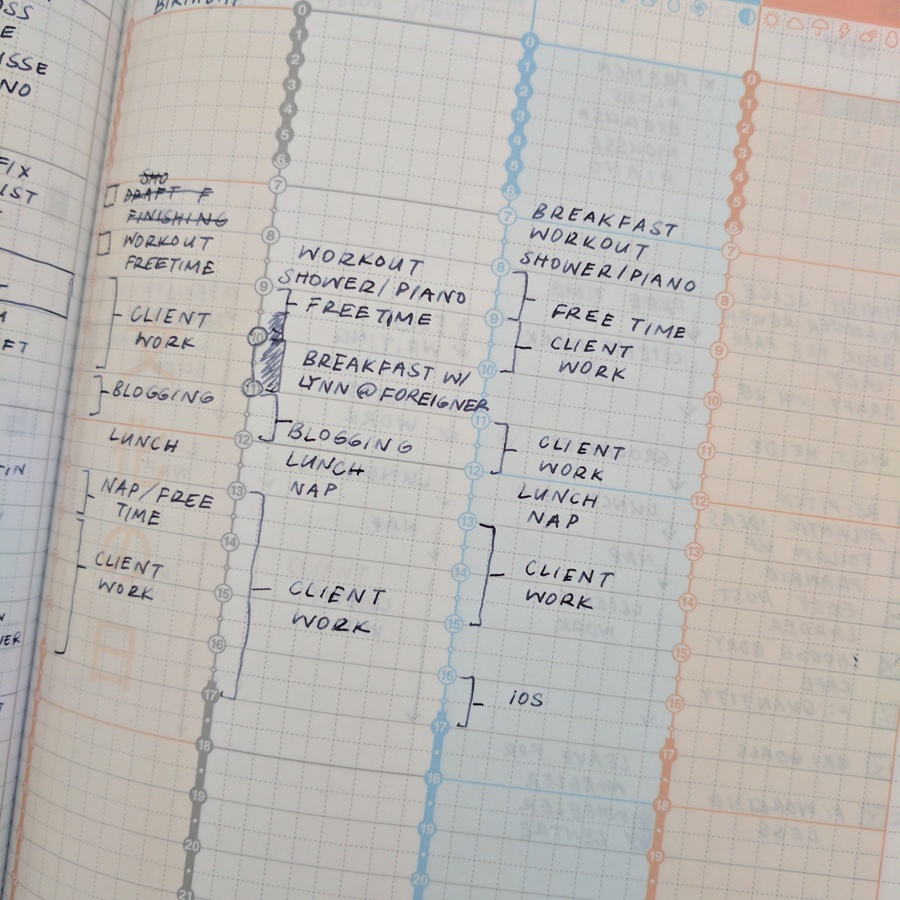 OSS
E
USSE
NO
FIX
IST
BIRTHDAY
SHO
DRAFT F
FINISHING
WORKOUT
FREETIME
CLIENT
WORK
BLOGGING
LUNCH
NAP/FREE
TIME
CLIENT
WORK
0
1
2
3
4
5
6
7
8
9
10
11
12
13
14
15
16
17
18
19
20
21
WORKOUT
SHOWER/PIANO
FREETIME
BREAKFAST W/
LYNN @ FOREIGNER
BLOGGING
LUNCH
NAP
CLIENT
WORK
0
1
2
3
4
5
6
7
8
9
10
11
12
13
14
15
16
17
18
19
20
BREAKFAST
WORKOUT
SHOWER/PIANO
FREE TIME
CLIENT
WORK
CLIENT
WORK
LUNCH
NAP
CLIENT
WORK
iOS
0
1
2
3
4
5
6
7
8
9
10
11
12
13
14
15
16
17
18
19